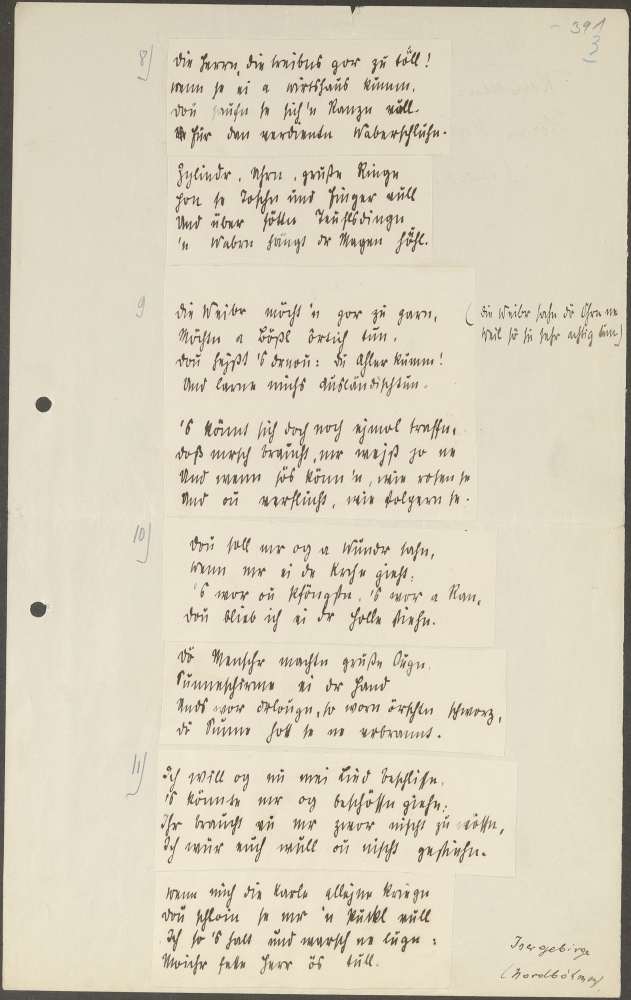 - 391
3
8) Die Herrn, die treibns gor zu töll!
wenn se ei a Wirtshaus kumm,
dou saufn se sich'n Ranzn vull
für dan verdienten Waberschluhn.
Zylindr, Uhrn, gruße Ringe
hon se Toschn und Finger vull
Und über sötte Teuflsdinge
'n Wabrn hängt dr Magen hohl.
9 Die Weibr möcht'n gor zu garn,
Möchtn a Bößl örtich tun,
dou heißt 's drnou: du Ahler kumm!
Und lerne michs ausländischtun.
(die Weibr sahn dö Ohrn ne
weil sö su sehr artig tun)
's könnt sich doch noch ejmol traffn,
doß mersch braucht, mr weiß jo ne
Und wenn sös könn'n, wie rosen se
Und ou verflucht, wie folpern se.
10) Dou soll mr og a Wundr sahn,
wenn mr ei de Krche gieht.
's wor ou Pfingstn, 's wor a Ran,
dou blieb ich ei dr Holle stiehn.
Dö Menschr machtn gruße Ougn
Sunneschirme ei dr Hand
Ends wor drlougn, so worn örschtn schworz,
di Sunne hott se ne verbrannt.
11) Ich will og nu mei Lied beschlissn.
's könnte mr og beschössn giehn.
Ihr braucht eu mr zwor nischt zu wössn,
Ich wür euch wull ou nischt gestiehn.
wenn mich die Karle allejne kriegn
dou schloin se mr 'n Puckl vull
Ich so 's halt und warsch ne lugn:
Moichr fete Herr ös tull.
Isergebirge
(Nordböhmen)